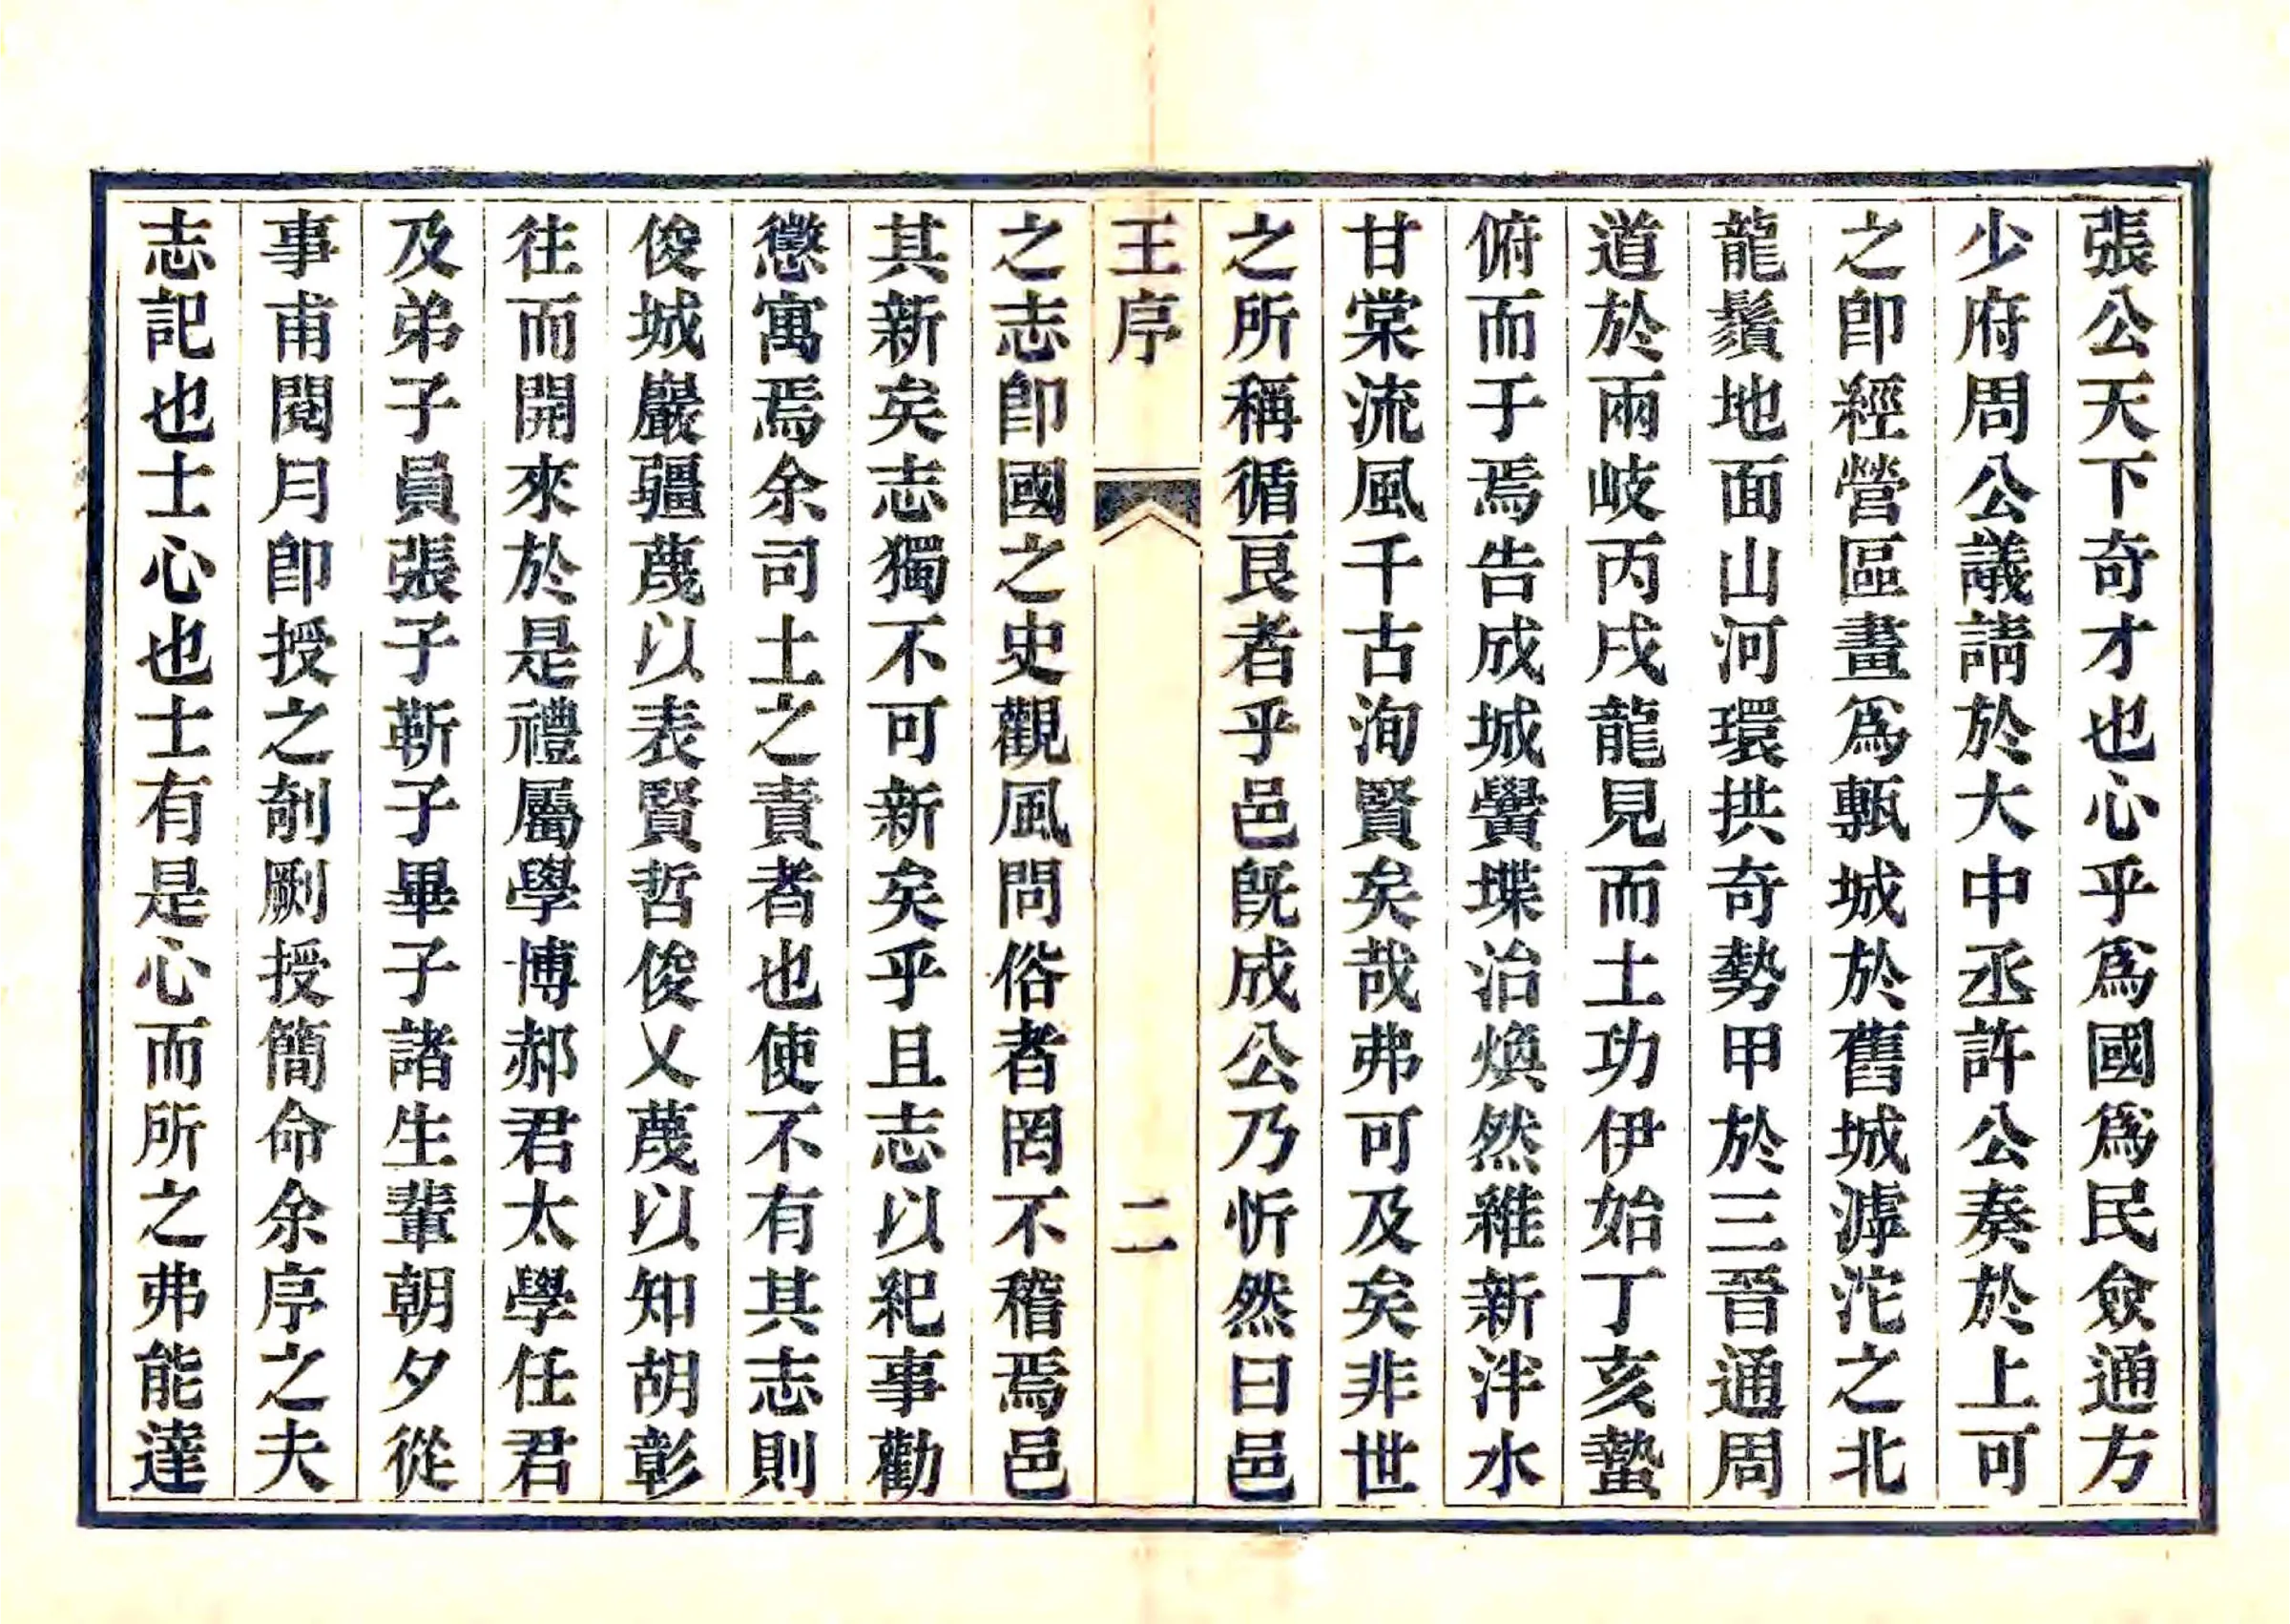 張公天下奇才也心乎爲國爲民僉通方
少府周公議請於大中丞許公奏於上可
之卽經營區畫爲甎城於舊城滹沱之北
龍鬚地面山河環拱奇勢甲於三晉通周
道於兩岐丙戌龍見而土功伊始丁亥蟄
俯而于焉告成城黌堞治煥然維新泮水
甘棠流風千古洵賢矣哉弗可及矣非世
之所稱循良者乎邑旣成公乃忻然曰邑
王序
二
之志卽國之史觀風問俗者罔不稽焉邑
其新矣志獨不可新矣乎且志以紀事勸
懲寓焉余司土之責者也使不有其志則
俊城巖疆蔑以表賢哲俊乂蔑以知胡彰
往而開來於是禮屬學博郝君太學任君
及弟子員張子靳子畢子諸生輩朝夕從
事甫閱月卽授之剞劂授簡命余序之夫
志記也士心也士有是心而所之弗能達